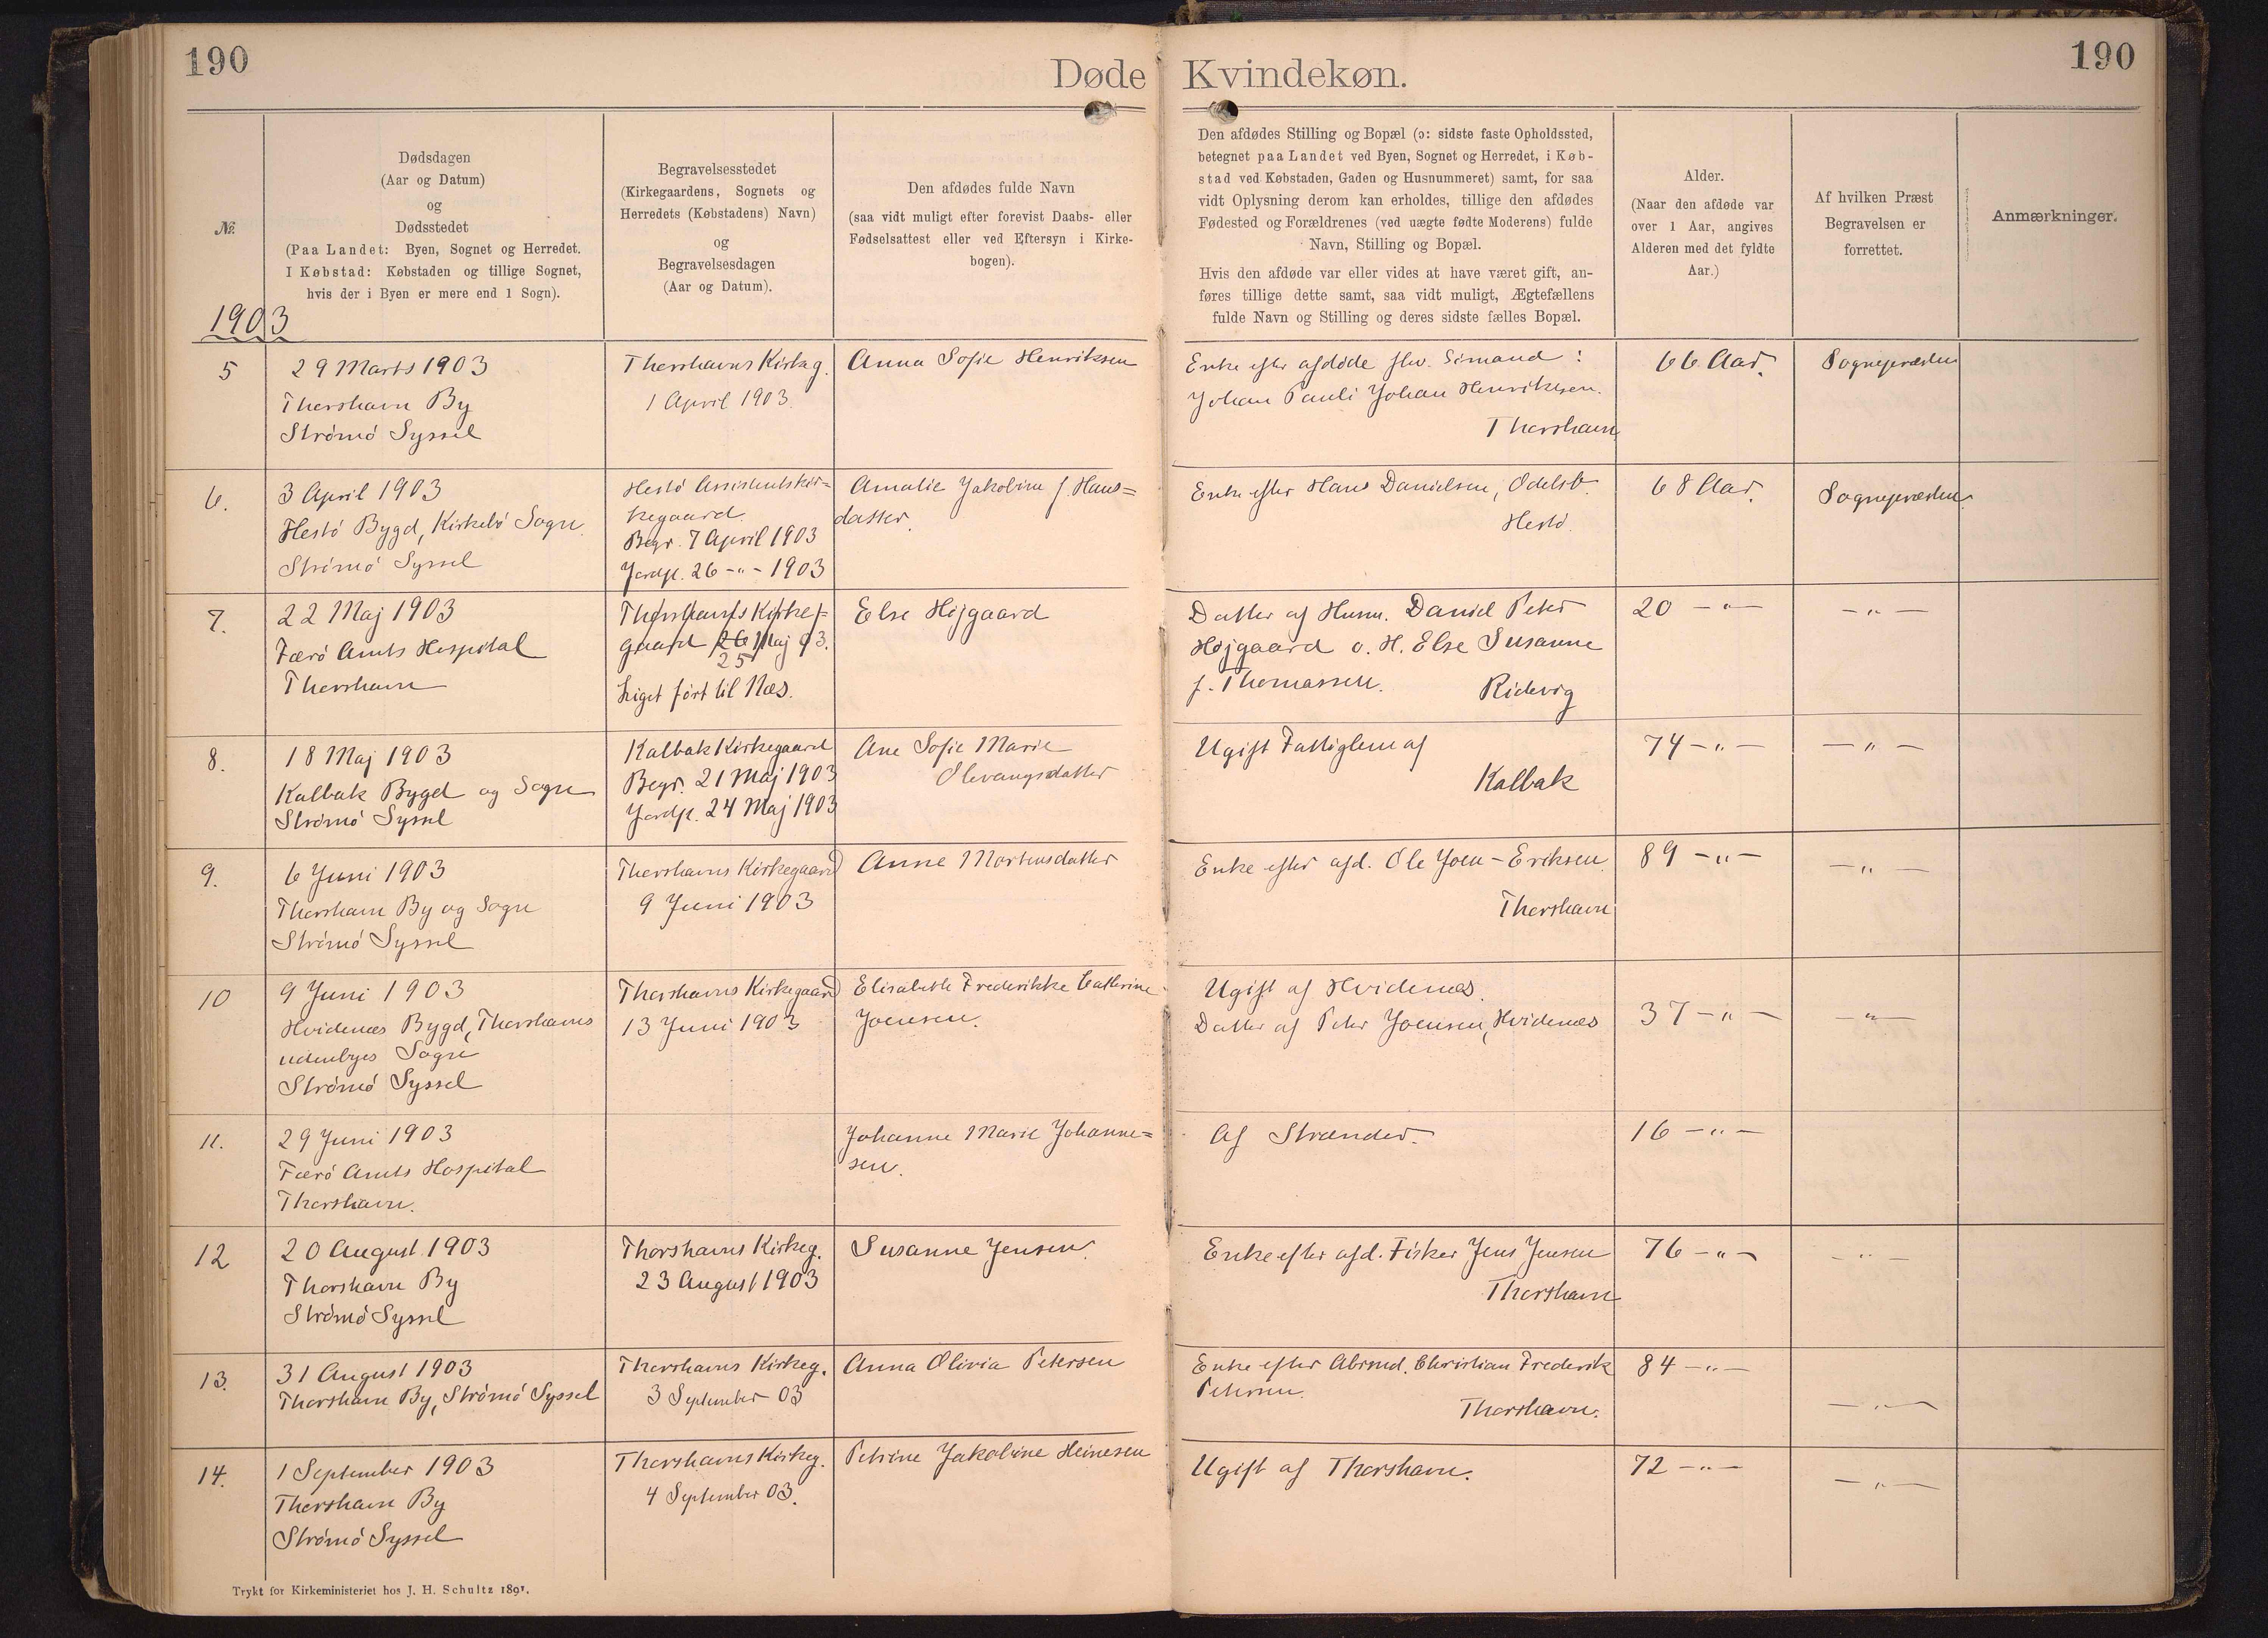 190
Døde Kvindekøn.
190
№
Dødsdagen
(Aar og Datum)
og
Dødsstedet
(Paa Landet: Byen, Sognet og Herredet.
I Købstad: Købstaden og tillige Sognet,
hvis der i Byen er mere end 1 Sogn).
Begravelsesstedet
(Kirkegaardens, Sognets og
Herredets (Købstadens) Navn)
og
Begravelsesdagen
(Aar og Datum).
Den afdødes fulde Navn
(saa vidt muligt efter forevist Daabs- eller
Fødselsattest eller ved Eftersyn i Kirke-
bogen).
Den afdødes Stilling og Bopæl (ɔ: sidste faste Opholdssted,
betegnet paa Landet ved Byen, Sognet og Herredet, i Køb-
stad ved Købstaden, Gaden og Husnummeret) samt, for saa
vidt Oplysning derom kan erholdes, tillige den afdødes
Fødested og Forældrenes (ved uægte fødte Moderens) fulde
Navn, Stilling og Bopæl.
Hvis den afdøde var eller vides at have været gift, an-
føres tillige dette samt, saa vidt muligt, Ægtefællens
fulde Navn og Stilling og deres sidste fælles Bopæl.
Alder.
(Naar den afdøde var
over 1 Aar, angives
Alderen med det fyldte
Aar.)
Af hvilken Præst
Begravelsen er
forrettet.
Anmærkninger.
1903
5
29 Marts 1903
Thorshavn By
Strømø Syssel
Thorshavns Kirkeg.
1 April 1903.
Anna Sofie Henriksen
Enke efter afdøde
Johan Pauli Johan Henriksen.
Thorshavn
66 Aar.
Sognepræsten
6.
3 April 1903
Hestø Bygd, Kirkebø Sogn.
Strømø Syssel
Hestø Assistentskir=
kegaard.
Begr. 7 April 1903
Jordp. 26 -„- 1903
Amalie Jakobine f. Hans=
datter.
Enke efter Hans Danielsen, Odelsb.
Hestø.
68 Aar.
Sognepræsten.
7.
22 Maj 1903
Færø Amts Hospital
Thorshavn
Thorshavns Kirke=
gaard 26 Maj 03.
25
Liget ført til Næs.
Else Højgaard
Datter af Husm. Daniel Peter
Højgaard o. H. Else Susanne
f. Thomassen. Ridevig
20 -„-
-„-
8.
18 Maj 1903
Kalbak Bygd og Sogn
Strømø Syssel
Kalbak Kirkegaard
Begr. 21 Maj 1903
Jordp. 24 Maj 1903
Ane Sofie Marie
Olevangsdatter
Ugift Fattiglem af
Kalbak
74 -„-
-„-
9.
6 Juni 1903
Thorshavn By og Sogn
Strømø Syssel
Thorshavns Kirkegaard
9 Juni 1903
Anne Mortensdatter
Enke efter afd. Ole Joen-Eriksen.
Thorshavn
89 -„-
-„-
10
9 Juni 1903
Hvidenæs Bygd, Thorshavns
udenbyes Sogn
Strømø Syssel
Thorshavns Kirkegaard
13 Juni 1903
Elisabeth Frederikke Cathrine
Joensen.
Ugift af Hvidenæs.
Datter af Peter Joensen, Hvidenæs
37 -„-
-„-
11.
29 Juni 1903
Færø Amts Hospital
Thorshavn.
Johanne Marie Johanne=
sen.
Af Strænder.
16 -„-
12
20 August 1903
Thorshavn By
Strømø Syssel
Thorshavns Kirkeg.
23 August 1903
Susanne Jensen.
Enke efter afd. Fisker Jens Jensen
Thorshavn
76 -„-
-„-
13.
31 August 1903
Thorshavn By, Strømø Syssel
Thorshavns Kirkeg.
3 September 03
Anna Olivia Petersen
Enke efter Abrmd. Christian Frederik
Petersen.
Thorshavn.
84 -„-
-„-
14.
1 September 1903
Thorshavn By
Strømø Syssel
Thorshavns Kirkeg.
4 September 03.
Petrine Jakobine Heinesen
Ugift af Thorshavn.
72 -„-
-„-
Trykt for Kirkeministeriet hos J. H. Schultz 1891.